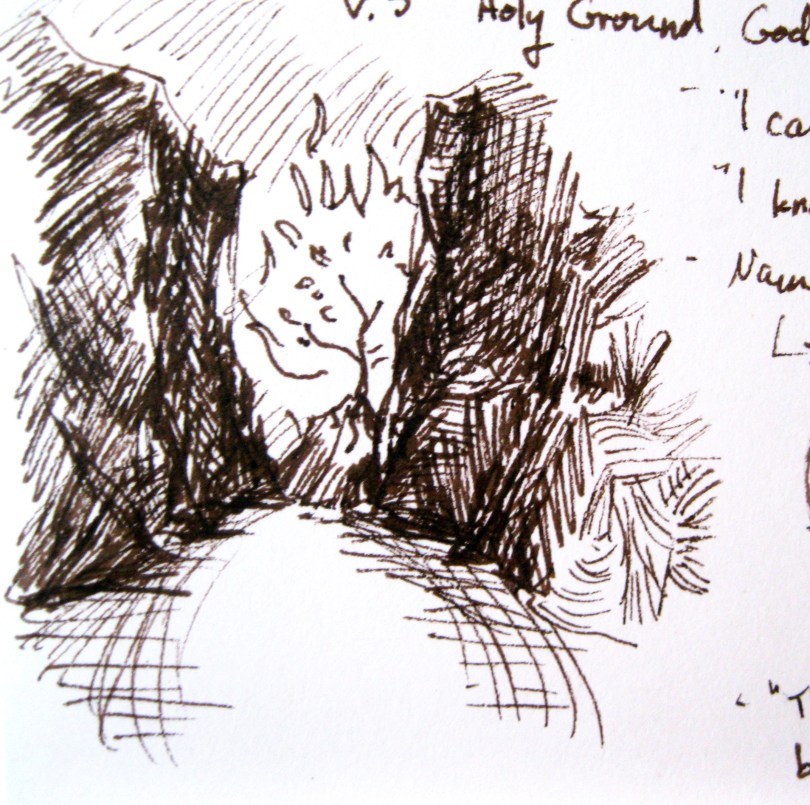 v. 5 Holy Ground. God
- "I ca
"I kn
- Nam
L
- "T
b